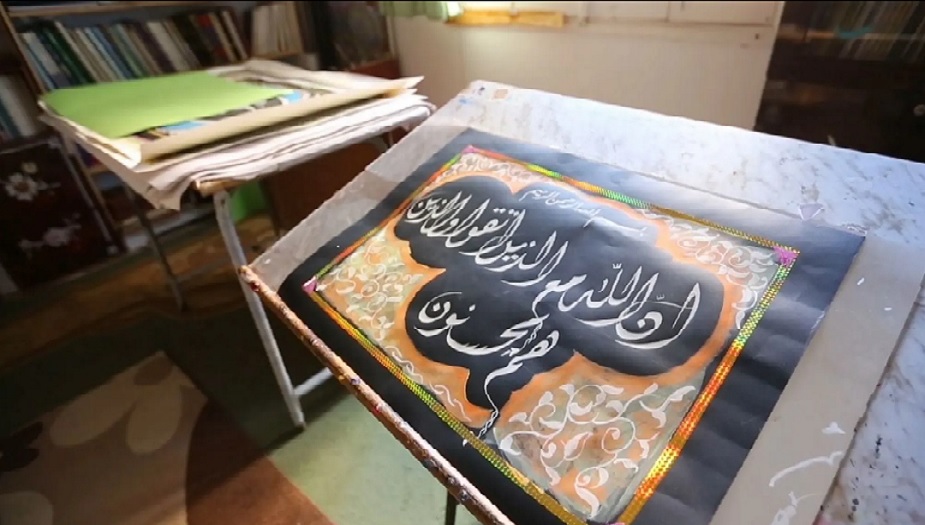 بسم الله الرحمن الرحیم
ان الله مع الذین اتقوا والذین
هم محسنون